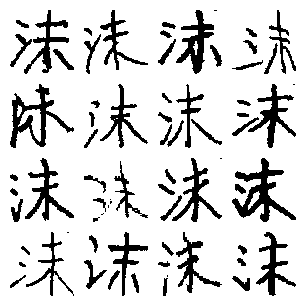 沫沫沫沫
沫沫沫沫
沫沫沫沫
沫沫沫沫